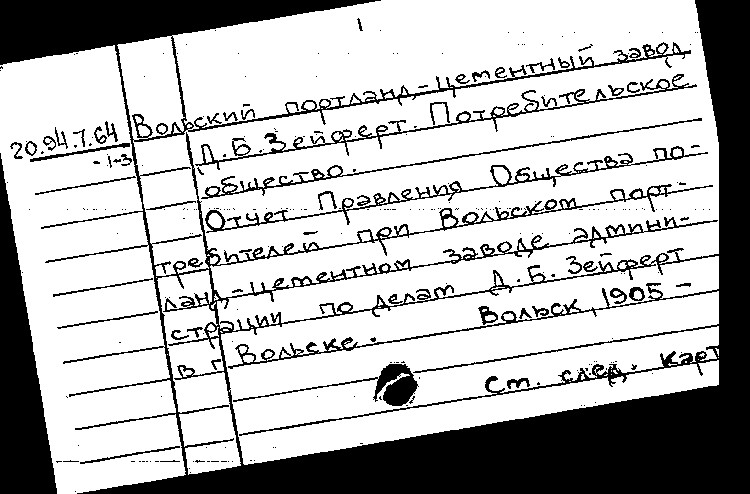 1
Вольский портланд-цементный завод
20.94.7.64
-1-3
Д.Б.Зейферт. Потребительское
общество.
Отчет Правления Общества по-
требителей при Вольском порт-
ланд-цементном заводе админи-
страции по делам Д.Б. Зейферт
в г Вольске. Вольск, 1905 -
См. след. карт